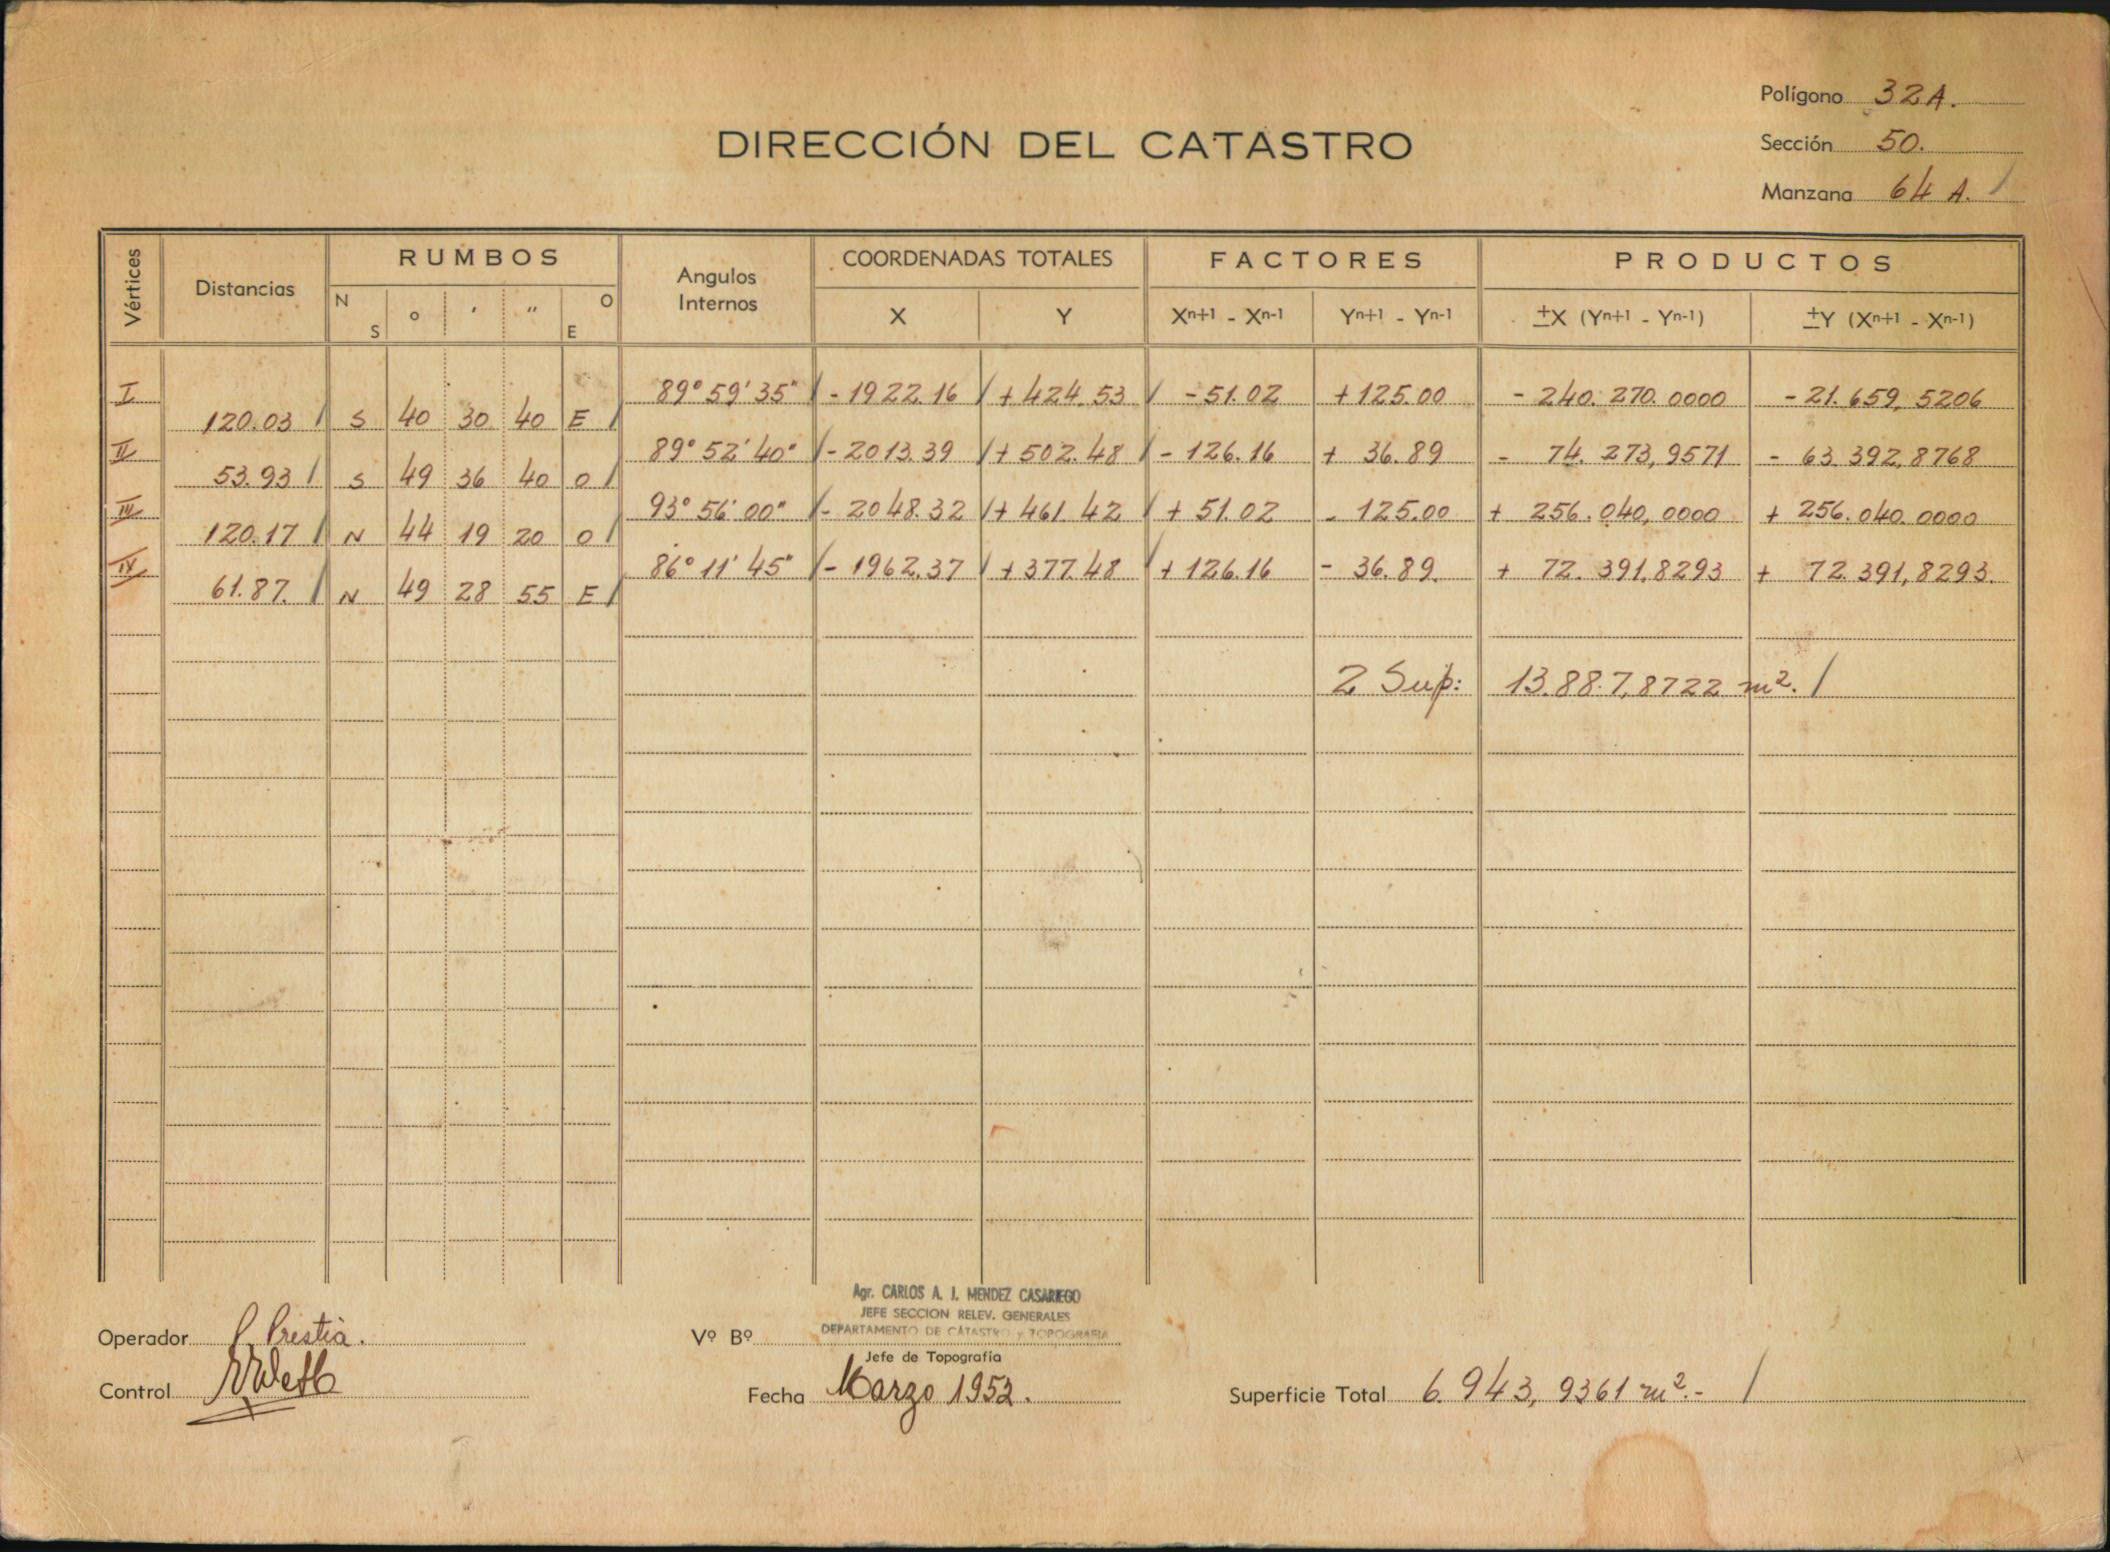 Polígono 32A.
DIRECCIÓN DEL CATASTRO
Sección 50.
Manzana 64 A. /
Vértices Distancias RUMBOS Angulos Internos COORDENADAS TOTALES FACTORES PRODUCTOS
N S o ' " O E X Y Xn+1 - Xn-1 Yn+1 - Yn-1 ±X (Yn+1 - Yn-1) ±Y (Xn+1 - Xn-1)
I 89° 59' 35" / - 1922.16 / + 424.53 / - 51.02 + 125.00 - 240.270.0000 - 21.659,5206
120.03 / S 40 30 40 E /
II 89° 52' 40" / - 2013.39 / + 502.48 / - 126.16 + 36.89 - 74.273,9571 - 63.392,8768
53.93 / S 49 36 40 O /
III 93° 56' 00" / - 2048.32 / + 461.42 / + 51.02 - 125.00 + 256.040,0000 + 256.040.0000
120.17 / N 44 19 20 O /
IV 86° 11' 45" / - 1962.37 / + 377.48 / + 126.16 - 36.89. + 72.391,8293 + 72.391,8293.
61.87. / N 49 28 55 E /
2 Sup: 13.88.7,8722 m². /
Agr. CARLOS A. J. MENDEZ CASARIEGO
JEFE SECCION RELEV. GENERALES
DEPARTAMENTO DE CATASTRO y TOPOGRAFIA
Operador P. Prestia.
Vº Bº
Jefe de Topografía
Control
Fecha Marzo 1952.
Superficie Total 6.943,9361 m².- /